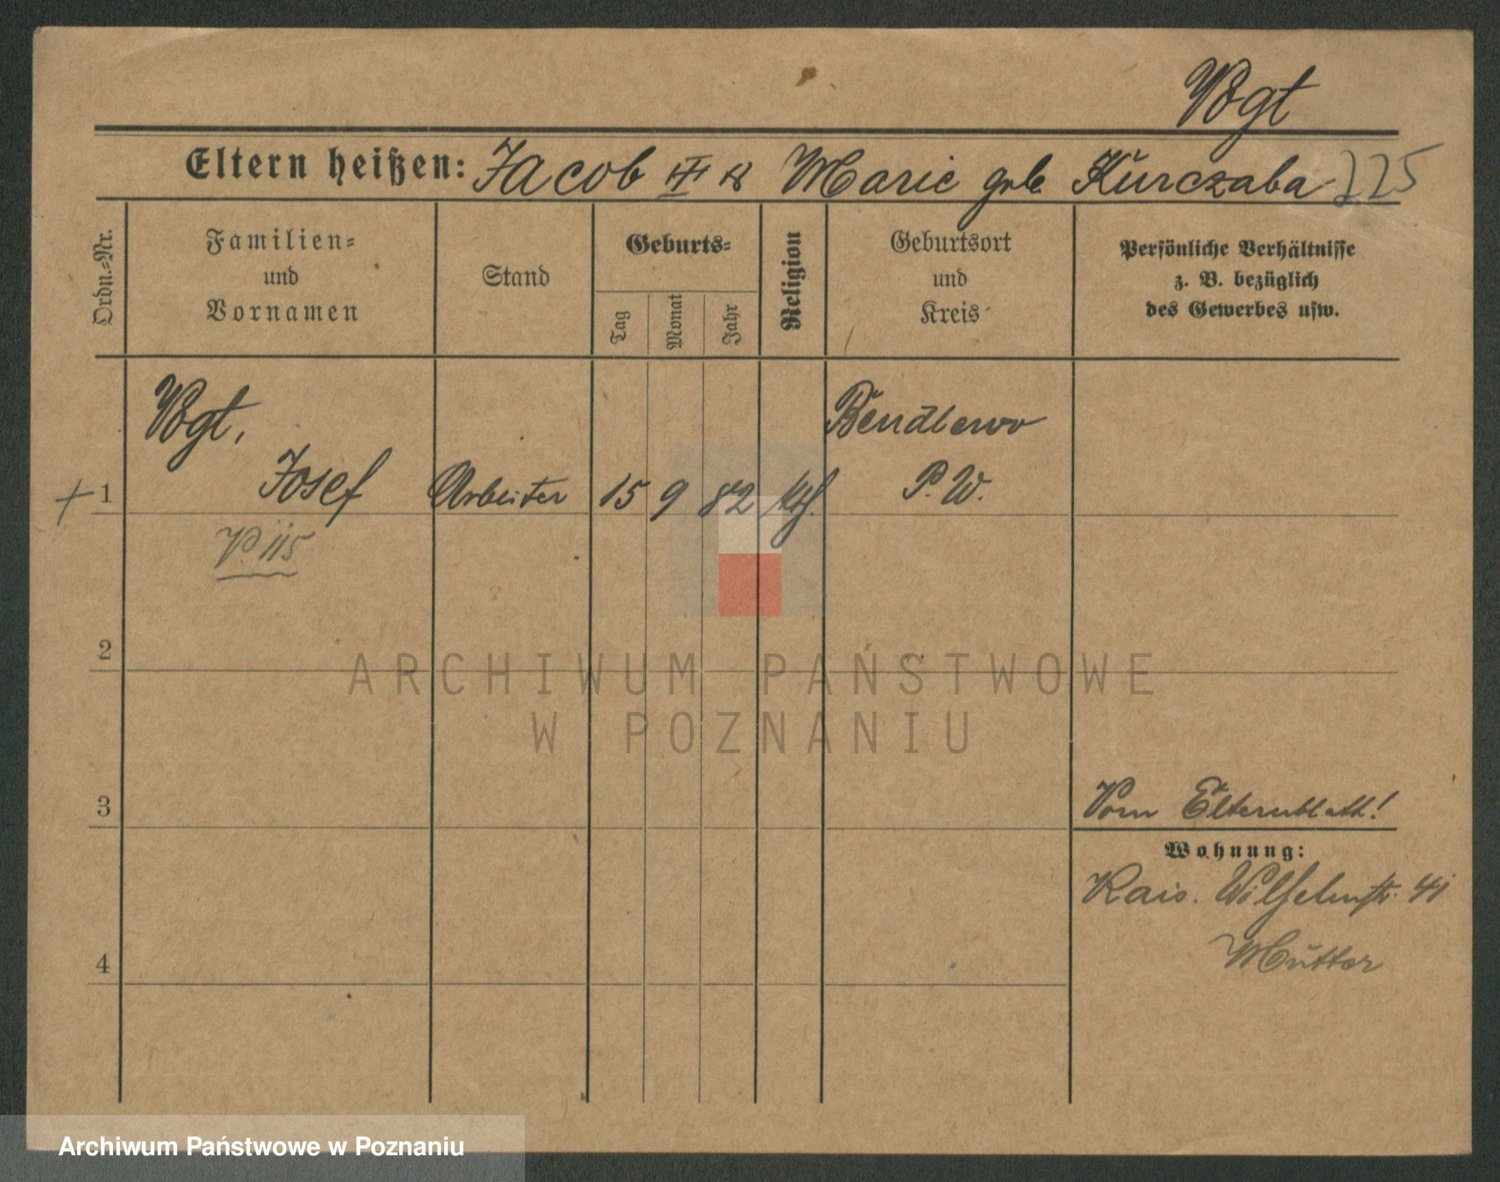 Vogt
Eltern heißen: Jacob Marie geb Kurczaba 225
Ordn.-Nr.
Familien-
und
Vornamen
Stand
Geburts-
Tag
Monat
Jahr
Religion
Geburtsort
und
Kreis
Persönliche Verhältnisse
z. B. bezüglich
des Gewerbes usw.
Vogt,
Bendlewo
+ 1 Josef Arbeiter 15 9 82 kth. P. W.
V. 115
2
ARCHIWUM PAŃSTWOWE
W POZNANIU
3 Vom Elternblatt!
Wohnung:
Kais. Wilhelmstr. 41
Mutter
4
Archiwum Państwowe w Poznaniu